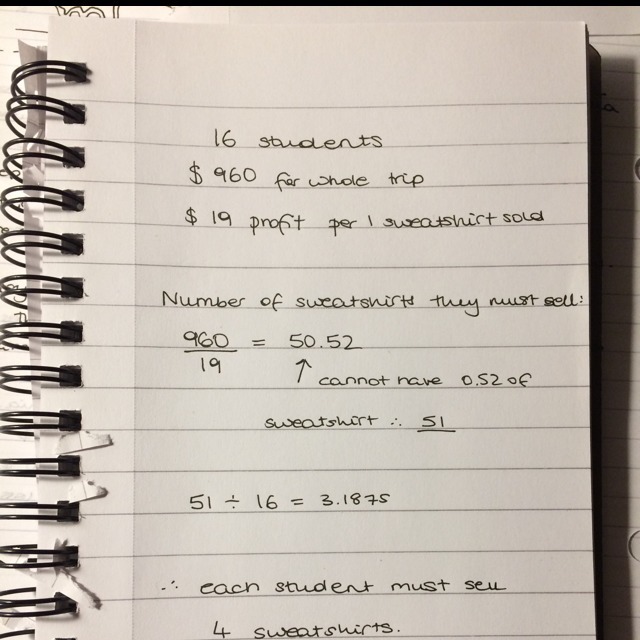 16 students
$ 960 for whole trip
$ 19 profit per 1 sweatshirt sold
Number of sweatshirts they must sell:
960/19 = 50.52
↑ cannot have 0.52 of
sweatshirt ∴ 51
51 ÷ 16 = 3.1875
∴ each student must sell
4 sweatshirts.